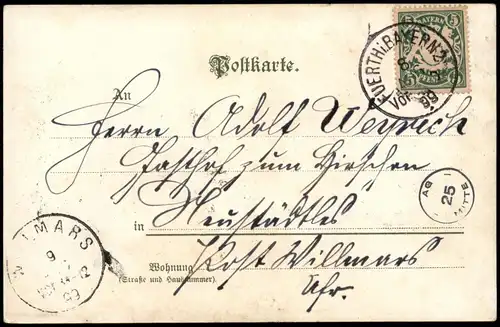 5 BAYERN 5
FUERTH i. BAYERN 2
VOR
99
Postkarte.
An
Herrn Adolf Weyrich
Gasthof zum Hirschen
AB I
25
MITTE
in Neustädtles
WILLMARS
9
99
Post Willmars
Wohnung
(Straße und Hausnummer)
Ufr.